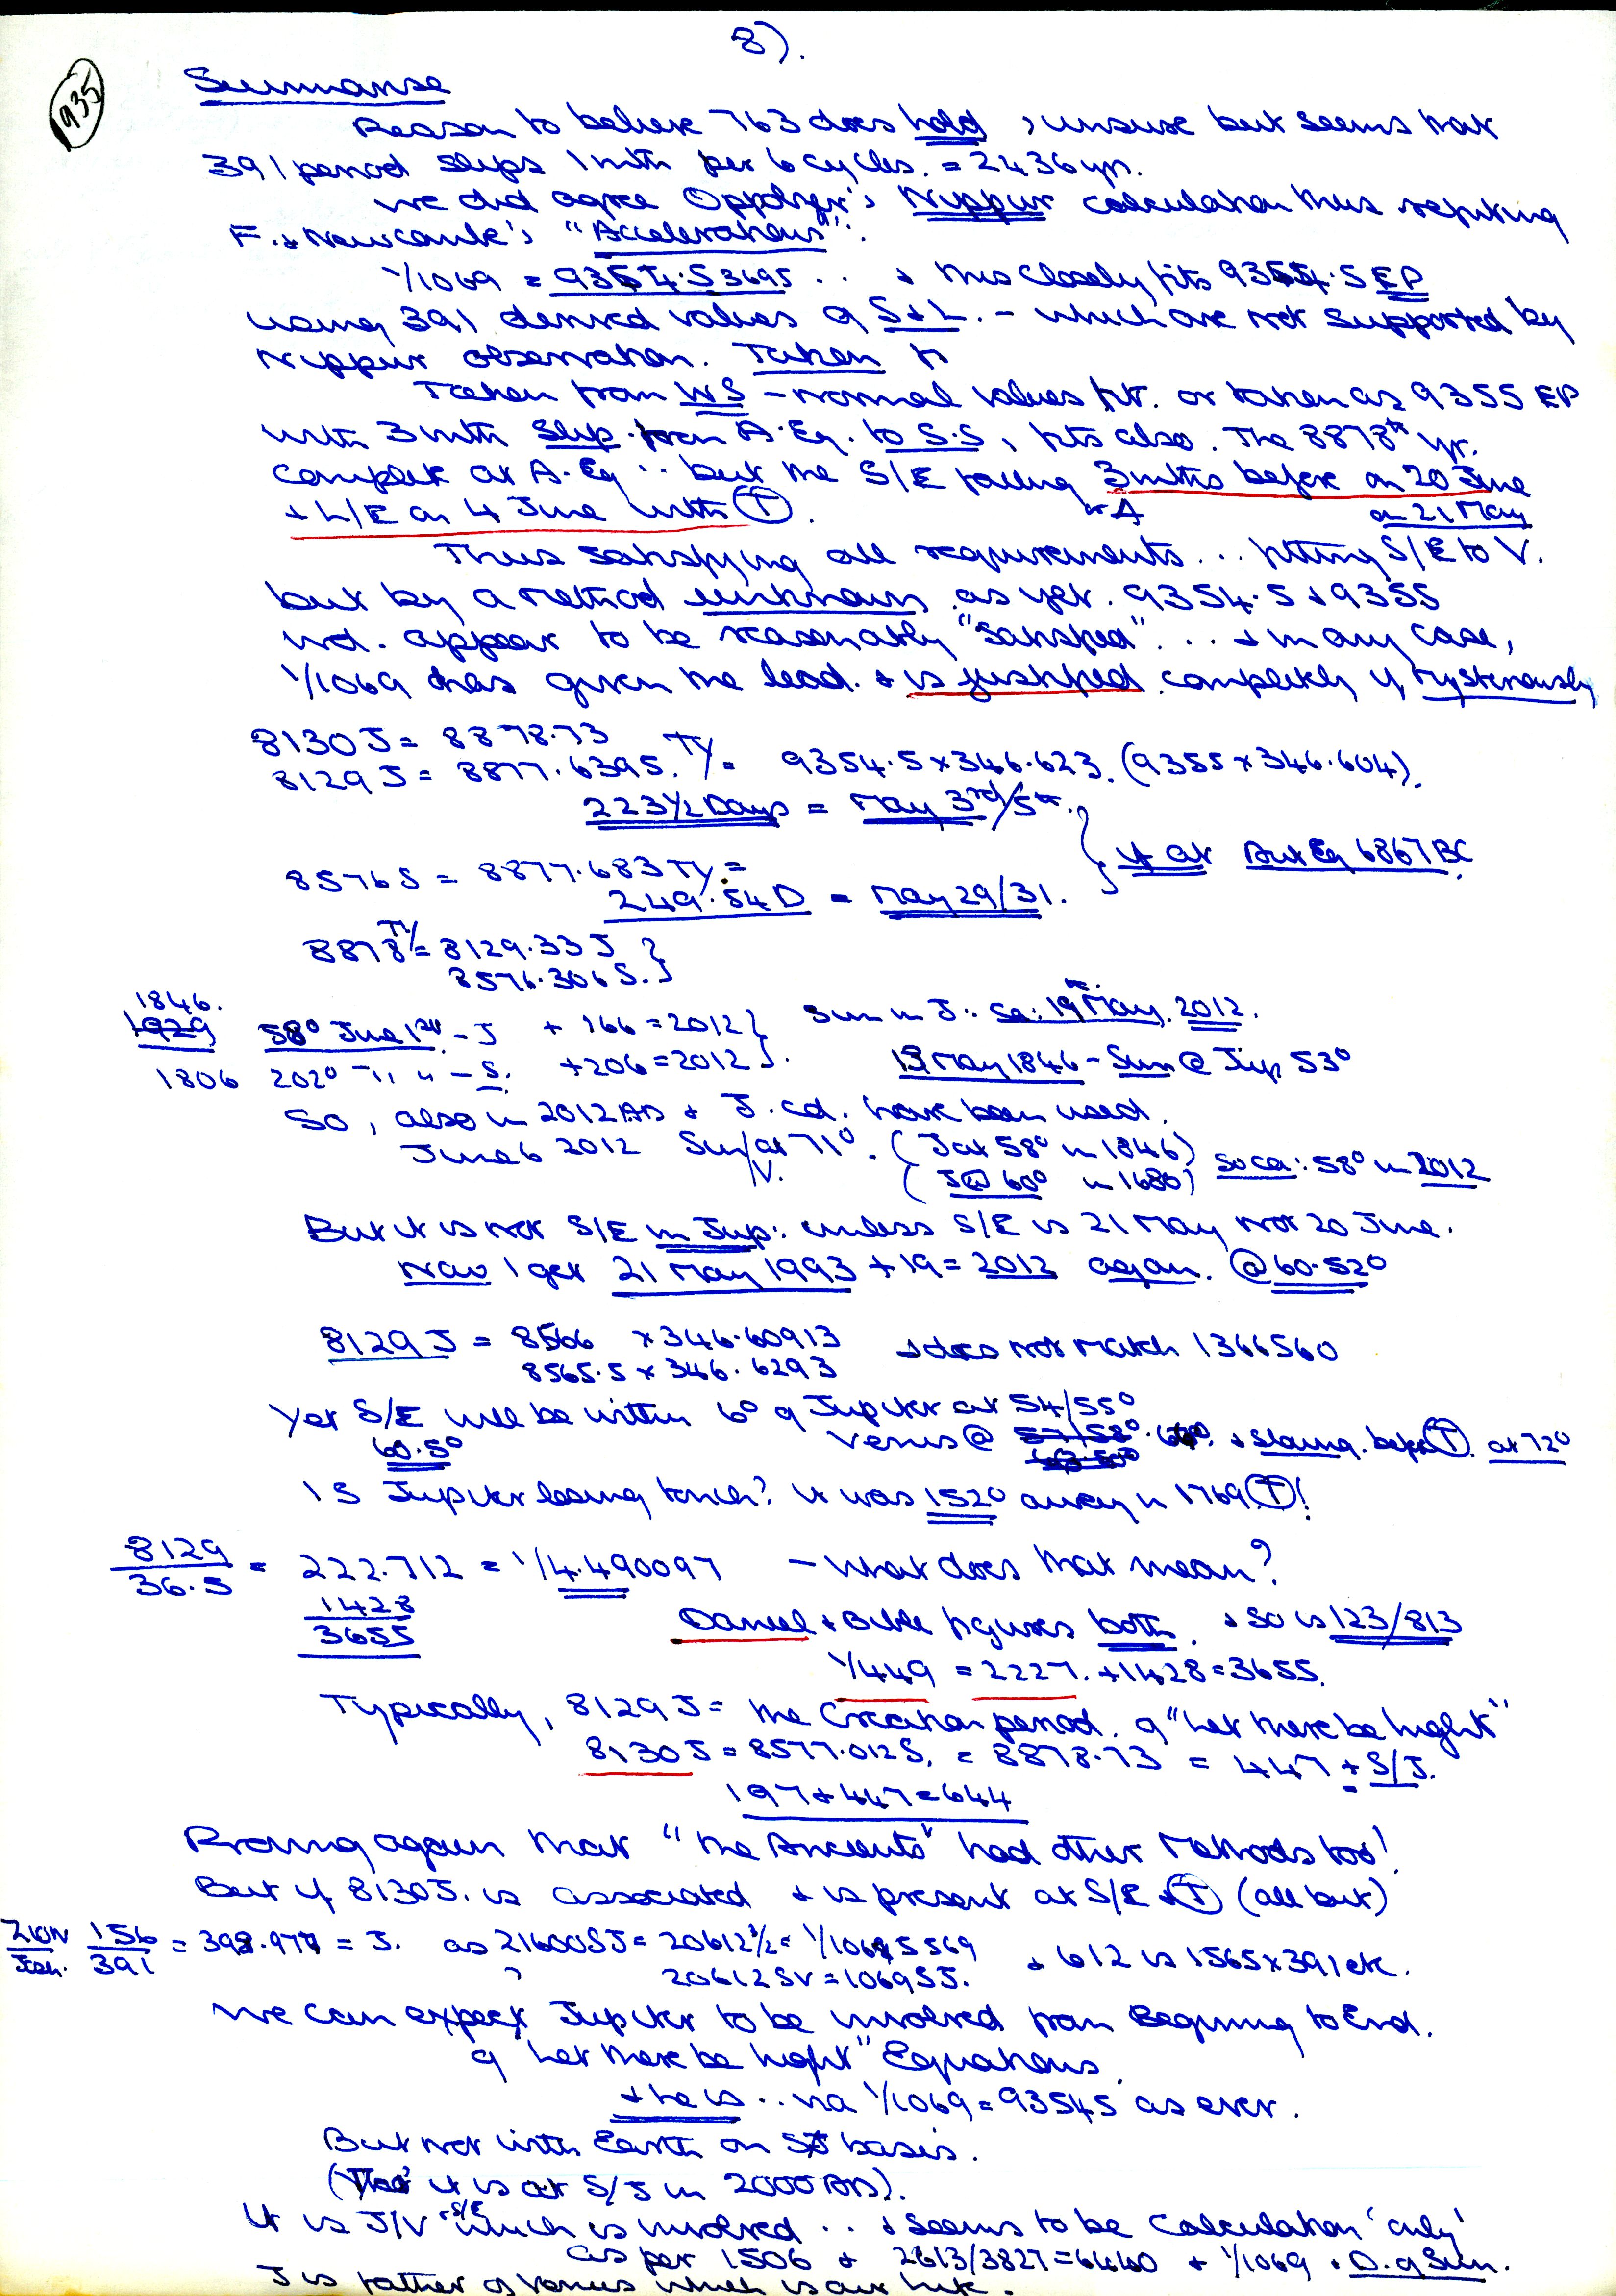 8).
1935
Summarise
Reason to believe 763 does hold, unsure but seems that
391 period slips 1 mth per 6 cycles. = 2436 yr.
We did agree Nippur calculation thus refuting
F. & Newcombe's "Accelerations".
1/1069 = 9354.53695 .. & this closely fits 9354.5 EP
using 391 derived values of S & L. - which are not supported by
Nippur observation. Taken fr
Taken from WS - normal values fit. or taken as 9355 EP
with 3 mth slip from A.Eq. to S.S, fits also. The 8878th yr.
complete at A.Eq .. but the S/E falling 3 mths before on 20 June
+ L/E on 4 June with (T). or A on 21 May
Thus satisfying all requirements ... fitting S/E to V.
but by a method unknown as yet. 9354.5 & 9355
wd. appear to be reasonably "satisfied" .. & in any case,
1/1069 has given the lead. & is justified completely if, mysteriously
8130 J = 8878.73
8129 J = 8877.6395. TY = 9354.5 x 346.623. (9355 x 346.604).
223 1/2 Days = May 3rd/5th. } if at Aut Eq 6867 BC
8576 S = 8877.683 TY =
249.54 D = May 29/31.
8878 TY = 8129.33 J }
8576.306 S. }
1846.
1929 58° June 1st - J + 166 = 2012 } Sun in J .. Sa: 19th May. 2012.
1806 202° - " " - S. + 206 = 2012 }. 13 May 1846 - Sun @ Jup 53°
So, also in 2012 AD & J. cd. have been used.
June 6 2012 Sun/at 71°. (J at 58° in 1846) so ca: 58° in 2012
V. (J @ 60° in 1680)
But it is not S/E in Jup: unless S/E is 21 May not 20 June.
Now I get 21 May 1993 + 19 = 2012 again. @ 60.52°
8129 J = 8566 x 346.60913 & does not match 1366560
8565.5 x 346.6293
Yet S/E will be within 6° of Jupiter at 54/55°
60.5° Venus @ 57/58° & slowing before (T) at 72°
Is Jupiter losing touch? It was 152° away in 1769 (T)!
8129/36.5 = 222.712 = 1/4.490097 - What does that mean?
1428
3655
Daniel & Bible figures both, & so is 123/813
1/449 = 2227. + 1428 = 3655.
Typically, 8129 J = the Creation period. of "Let there be light"
8130 J = 8577.012 S. = 8878.73 = 447 + S/J.
197 + 447 = 644
Proving again that "the Ancients" had other Methods too!
But if 8130 J. is associated & is present at S/E & (T) (all but)
156/391 = 398.977 = J. as 21600 SJ = 20612 1/2 = & 612 is 1565 x 391 etc.
20612 SV = 1069 SJ.
We can expect Jupiter to be involved from Beginning to End.
of "Let there be light" Equations.
& he is .. via 1/1069 = 93545 as ever.
But not with Earth on SJ basis.
(Tho' it is at S/J in 2000 AD).
It is J/V - S/E which is involved .. & seems to be calculation 'only'
as per 1506 & 2613/3827 = 6440 & 1/1069 . D. of Sun.
J is father of Venus which is our link.